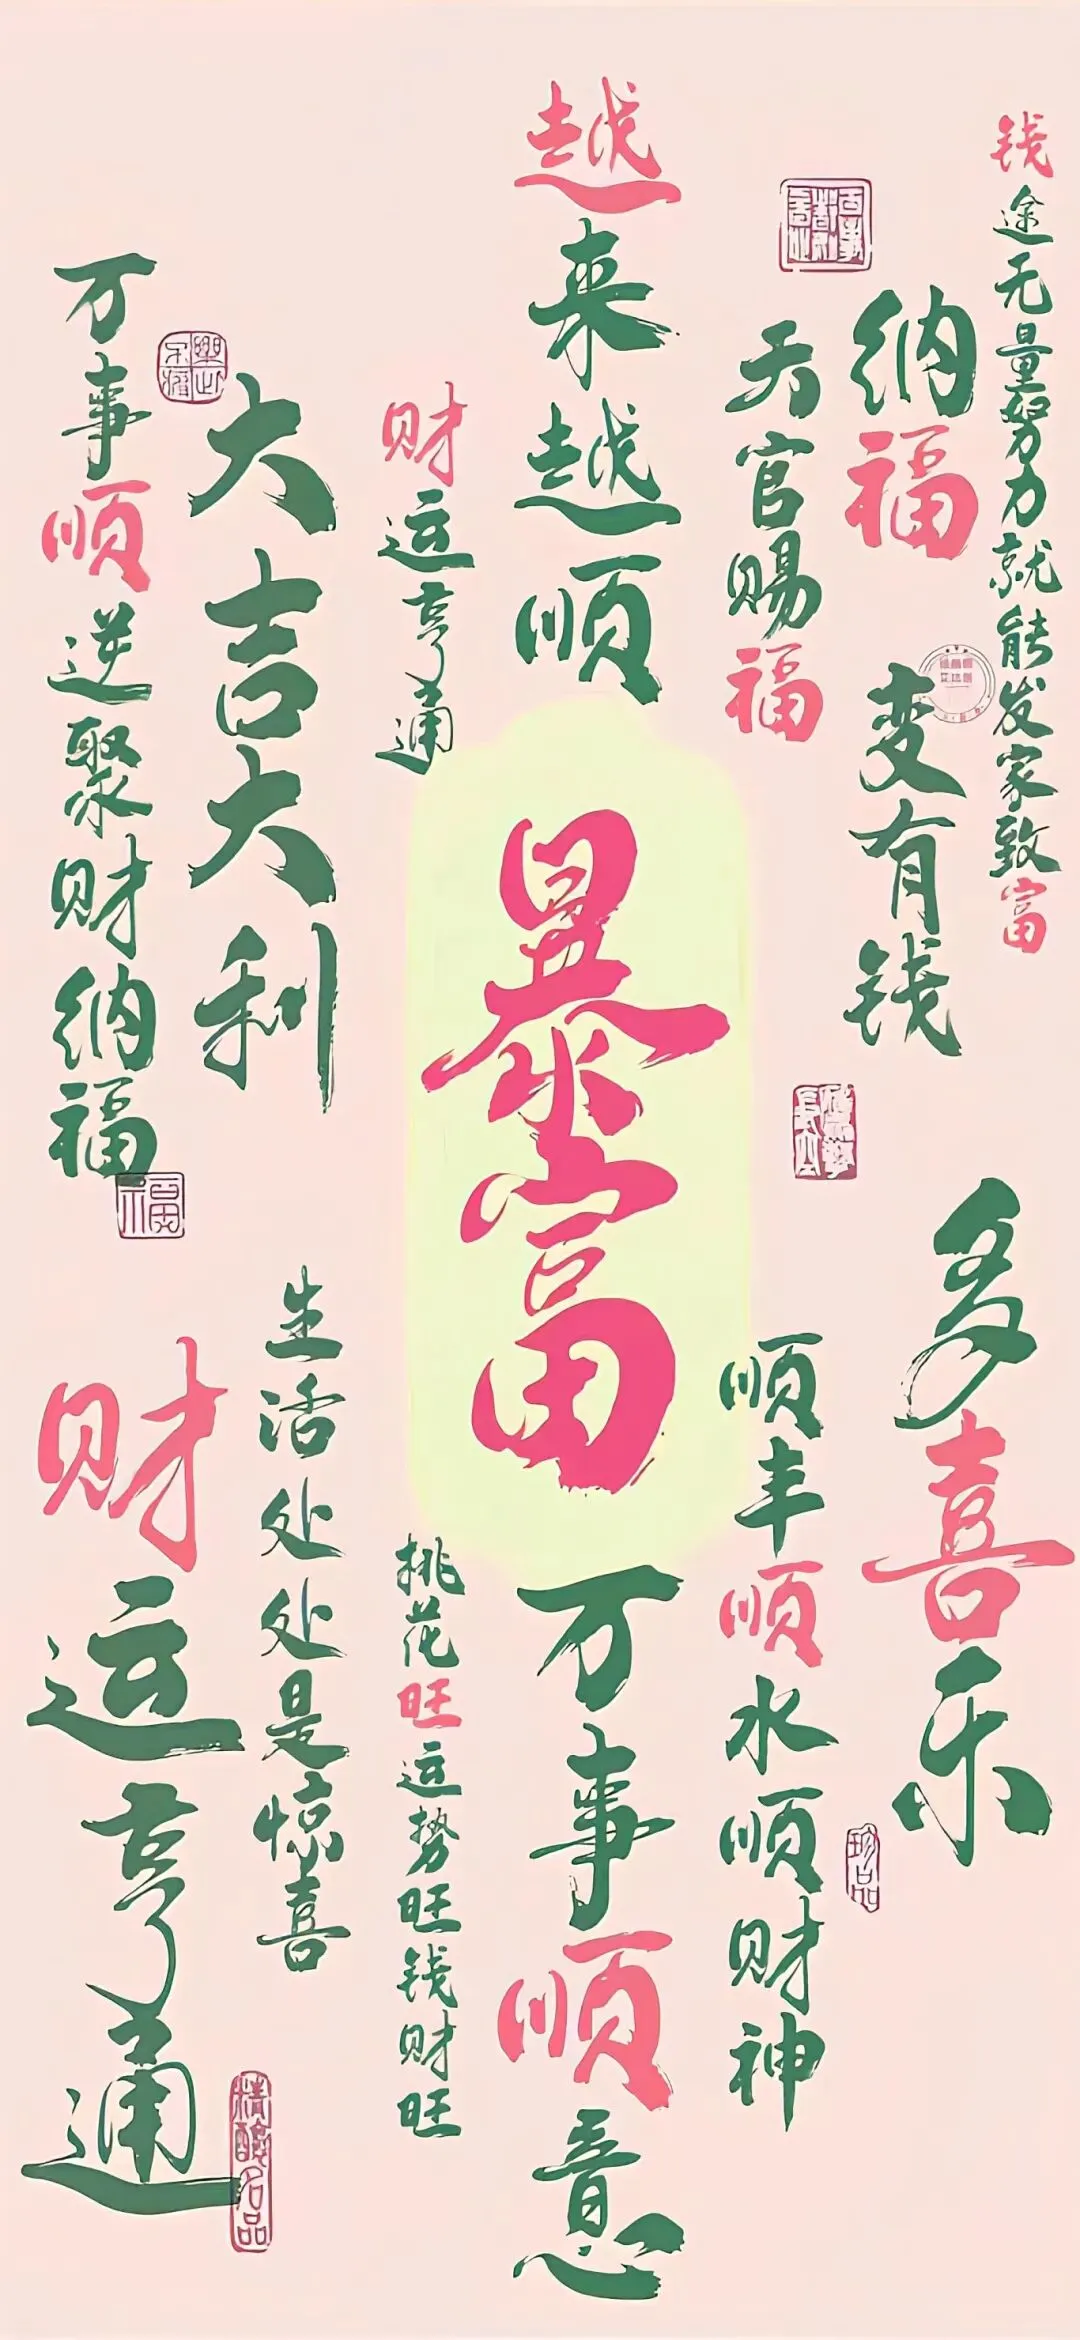 钱途无量努力就能发家致富
纳福
变有钱
多喜乐
天官赐福
顺丰顺水顺财神
越来越顺
暴富
万事顺意
财运亨通
桃花旺运势旺钱财旺
大吉大利
生活处处是惊喜
万事顺逆聚财纳福
财运亨通
福
珍品
精酿名品